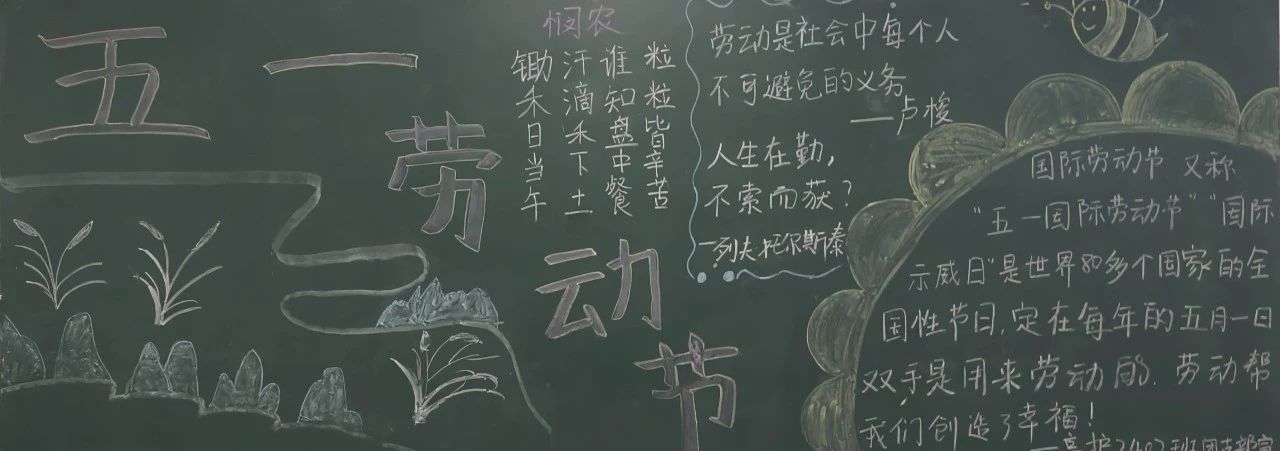 五一劳动节
悯农
锄禾日当午
汗滴禾下土
谁知盘中餐
粒粒皆辛苦
劳动是社会中每个人
不可避免的义务
—卢梭
人生在勤,
不索而获?
—列夫.托尔斯泰
国际劳动节 又称
"五一国际劳动节" "国际
示威日"是世界80多个国家的全
国性节日,定在每年的五月一日
双手是用来劳动的.劳动帮
我们创造了幸福!
—高护2402班团支部宣